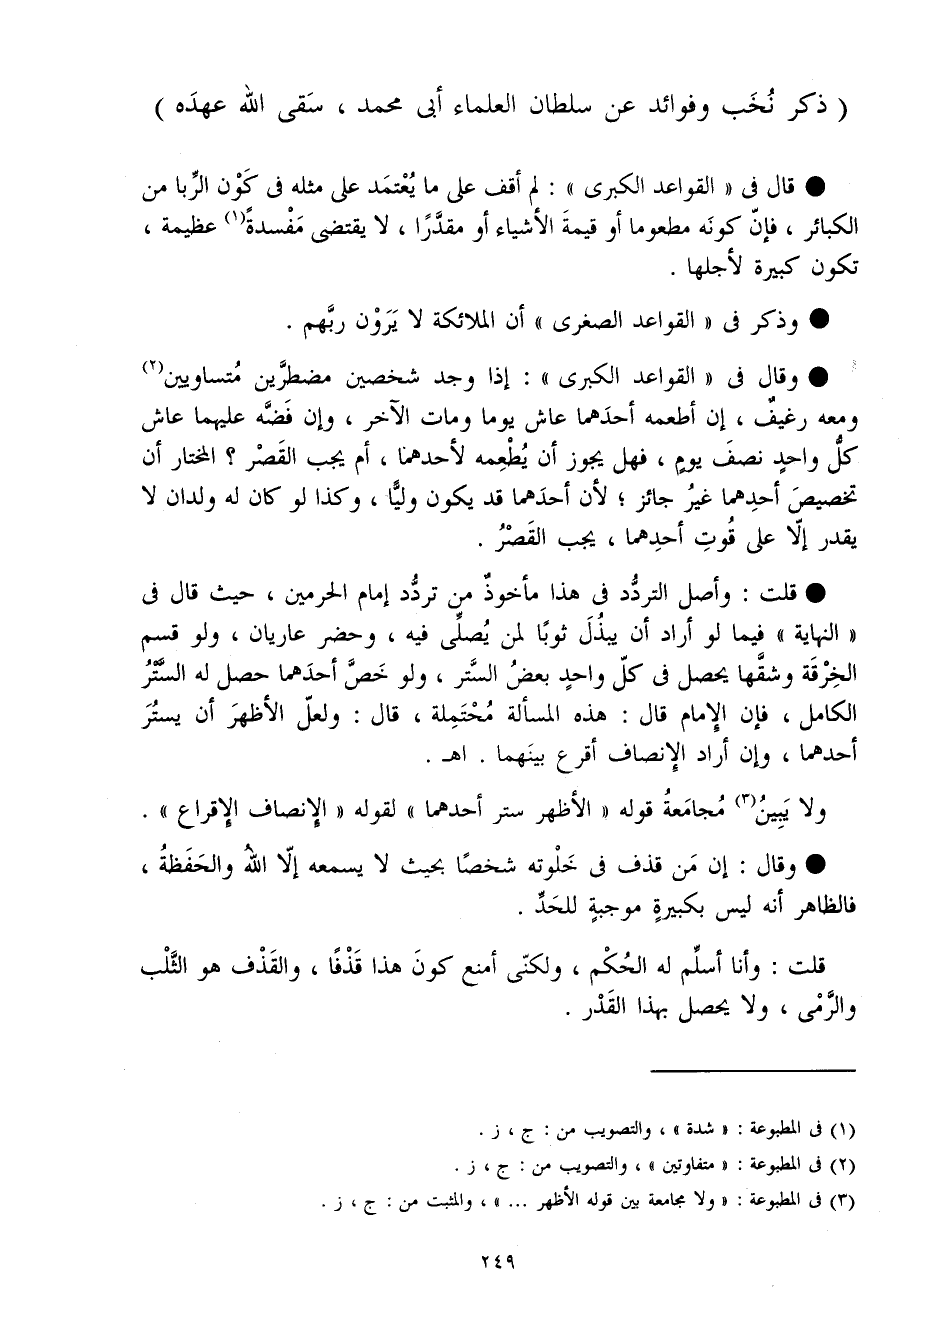 ( ذكر نُخَب وفوائد عن سلطان العلماء أبى محمد ، سَقى الله عهدَه )
● قال فى « القواعد الكبرى » : لم أقف على ما يُعْتمَد على مثله فى كَوْن الرِّبا من
الكبائر ، فإنّ كونَه مطعوما أو قيمةَ الأشياء أو مقدَّرًا ، لا يقتضى مَفْسدةً(١) عظيمة ،
تكون كبيرة لأجلها .
● وذكر فى « القواعد الصغرى » أن الملائكة لا يَرَوْن ربَّهم .
● وقال فى « القواعد الكبرى » : إذا وجد شخصين مضطرَّين مُتساويين(٢)
ومعه رغيفٌ ، إن أطعمه أحدَهما عاش يوما ومات الآخر ، وإن فَضَّه عليهما عاش
كلُّ واحدٍ نصفَ يومٍ ، فهل يجوز أن يُطْعِمه لأحدهما ، أم يجب القَصْر ؟ المختار أن
تخصيصَ أحدِهما غيرُ جائز ؛ لأن أحدَهما قد يكون وليًّا ، وكذا لو كان له ولدان لا
يقدر إلّا على قُوتِ أحدِهما ، يجب القَصْرُ .
● قلت : وأصل التردُّد فى هذا مأخوذٌ من تردُّد إمام الحرمين ، حيث قال فى
« النهاية » فيما لو أراد أن يبذُلَ ثوبًا لمن يُصلِّى فيه ، وحضر عاريان ، ولو قسم
الخِرْقَة وشقَّها يحصل فى كلّ واحدٍ بعضُ السَّتر ، ولو خَصَّ أحدَهما حصل له السَّتْرُ
الكامل ، فإن الإمام قال : هذه المسألة مُحْتَمِلة ، قال : ولعلّ الأظهرَ أن يستُرَ
أحدهما ، وإن أراد الإنصاف أقرع بينَهما . اهـ .
ولا يَبِينُ(٣) مُجامَعةُ قوله « الأظهر ستر أحدهما » لقوله « الإنصاف الإقراع » .
● وقال : إن مَن قذف فى خَلْوته شخصًا بحيث لا يسمعه إلّا اللهُ والحَفَظةُ ،
فالظاهر أنه ليس بكبيرةٍ موجبةٍ للحَدِّ .
قلت : وأنا أسلِّم له الحُكْم ، ولكنّى أمنع كونَ هذا قَذْفًا ، والقَذْف هو الثَّلْب
والرَّمْى ، ولا يحصل بهذا القَدْر .
(١) فى المطبوعة : « شدة » ، والتصويب من : ج ، ز .
(٢) فى المطبوعة : « متفاوتين » ، والتصويب من : ج ، ز .
(٣) فى المطبوعة : « ولا مجامعة بين قوله الأظهر ... » ، والمثبت من : ج ، ز .
٢٤٩